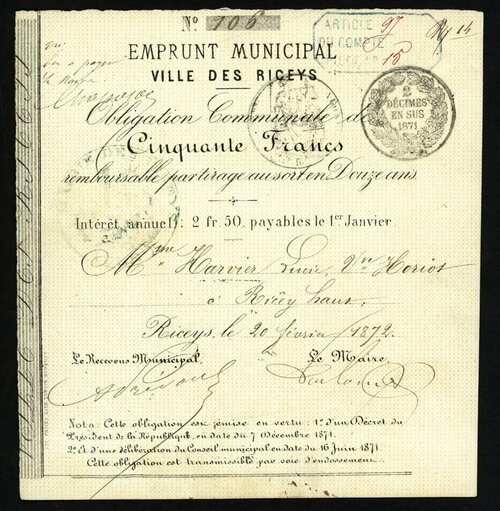 N° 106
ARTICLE 97
DU COMPTE
15
EMPRUNT MUNICIPAL
VILLE DES RICEYS
2
DÉCIMES
EN SUS
1871
Obligation Communale de
Cinquante Francs
remboursable par tirage au sort en Douze ans.
Intérêt annuel: 2 fr. 50, payables le 1er Janvier
Mme Harvier Lucie Vve Horiot
à Ricey haut.
Riceys, le 20 février 1872.
Le Receveur Municipal, Le Maire,
Nota: Cette obligation est émise en vertu: 1° d'un Décret du
Président de la République, en date du 7 Décembre 1871.
2° Et d'une délibération du Conseil municipal en date du 16 Juin 1871
Cette obligation est transmissible par voie d'endossement.